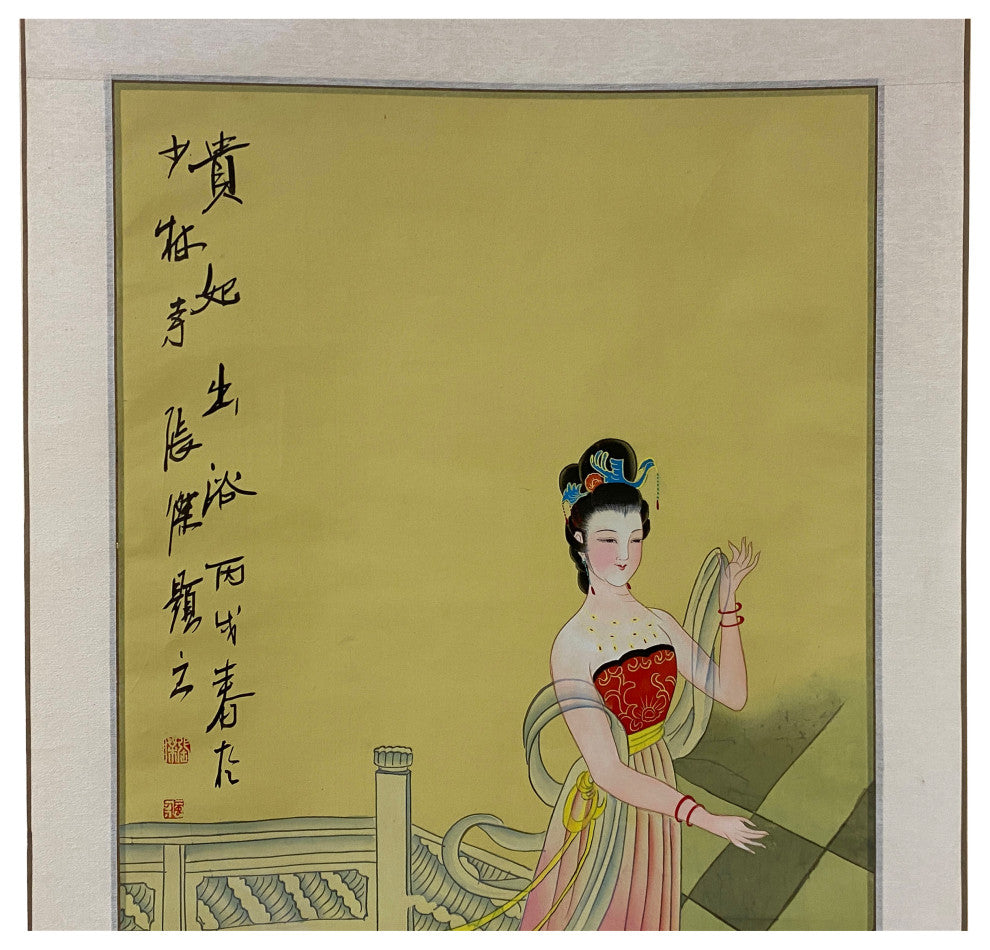 貴妃出浴丙戌春於
少林寺張傑題之